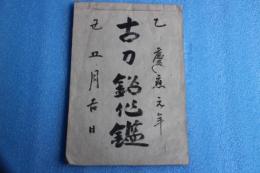 乙 慶應元年
古刀銘作鑑
丑 五月吉日